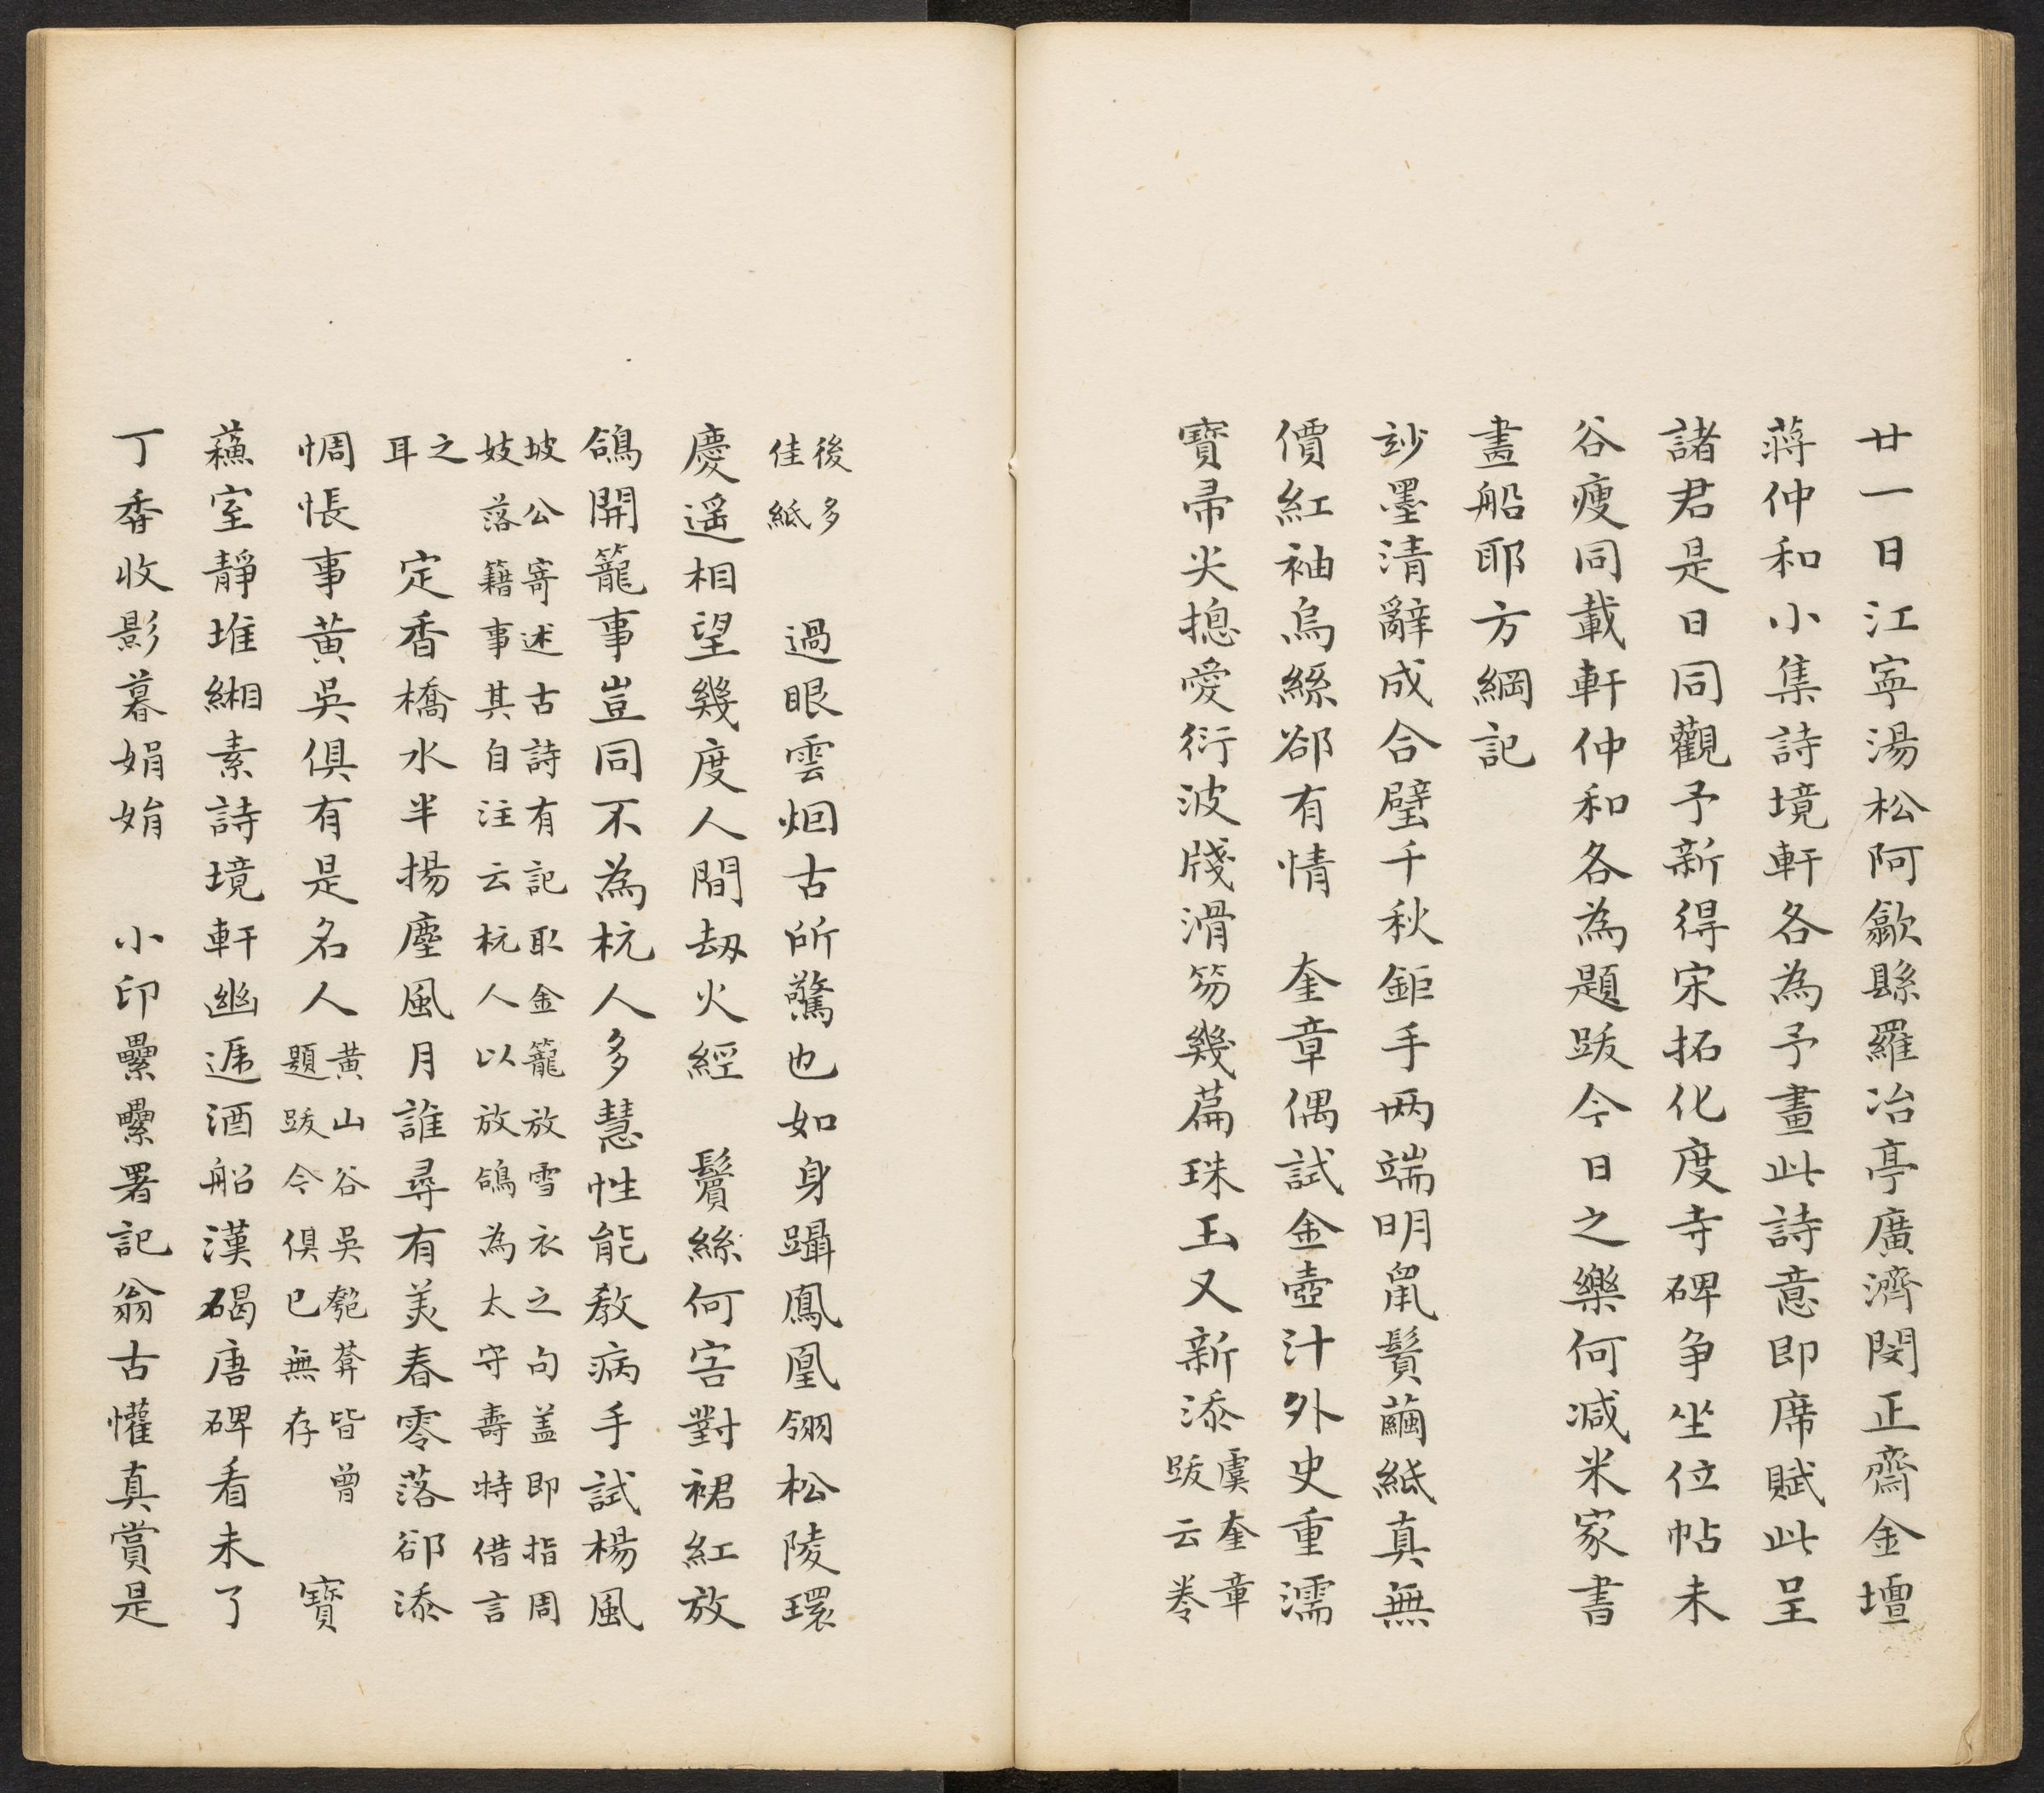 廿一日江寧湯松阿歙縣羅冶亭廣濟閔正齋金壇
蔣仲和小集詩境軒各為予畫此詩意即席賦此呈
諸君是日同觀予新得宋拓化度寺碑争坐位帖未
谷瘦同載軒仲和各為題跋今日之樂何減米家書
畫船耶方綱記
玅墨清辭成合璧千秋鉅手兩端明鼠鬚繭紙真無
價紅袖烏絲郤有情　奎章偶試金壺汁外史重濡
寶帚尖摠愛衍波牋滑笏幾篇珠玉又新添
虞奎章
跋云卷
後多
佳紙
過眼雲烟古所驚也如身躡鳳凰翎松陵環
慶遥相望幾度人間劫火經　鬢絲何害對裙紅放
鴿開籠事豈同不為杭人多慧性能教病手試楊風
坡公寄述古詩有記取金籠放雪衣之句盖即指周
妓落籍事其自注云杭人以放鴿為太守壽特借言
之
耳
定香橋水半揚塵風月誰尋有美春零落郤添
惆悵事黄吳俱有是名人
黄山谷吳匏葊皆曾
題跋今俱已無存
寶
蘓室靜堆緗素詩境軒幽遞酒船漢碣唐碑看未了
丁香收影暮娟娟　小印纍纍署記翁古懽真賞是